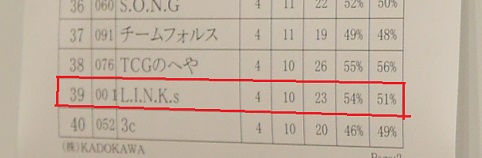 36 060 S.O.N.G 4 11 22 52% 50%
37 091 チームフォルス 4 11 19 49% 48%
38 076 TCGのへや 4 10 26 55% 56%
39 001 L.I.N.K.s 4 10 23 54% 51%
40 052 3c 4 10 20 46% 49%
(株)KADOKAWA